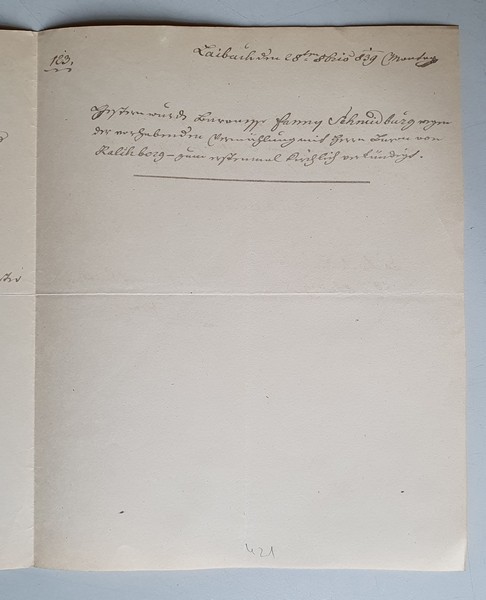 123.
Laibach den 28ten 8bris 839 Montag
Gestern wurde Baronesse Fanny Schmidburg wegen
der vorhabenden Vermählung mit Herrn Baron von
Kalchberg – zum erstenmal kirchlich verkündigt.
421